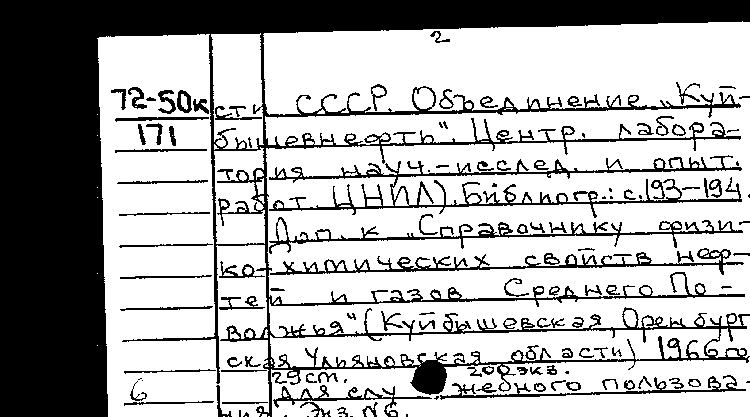 2
72-50к сти СССР. Объединение „Куй-
171 бышевнефть". Центр. лабора-
тория науч.-исслед. и опыт.
работ. ЦНИЛ). Библиогр.: с. 193-194.
Доп. к „Справочнику физи-
ко-химических свойств неф-
тей и газов Среднего По-
волжья" (Куйбышевская, Оренбург
ская, Ульяновская области) 1966 го
29 см. 200 экз.
6 Для служебного пользова-
ния. Экз. №6.